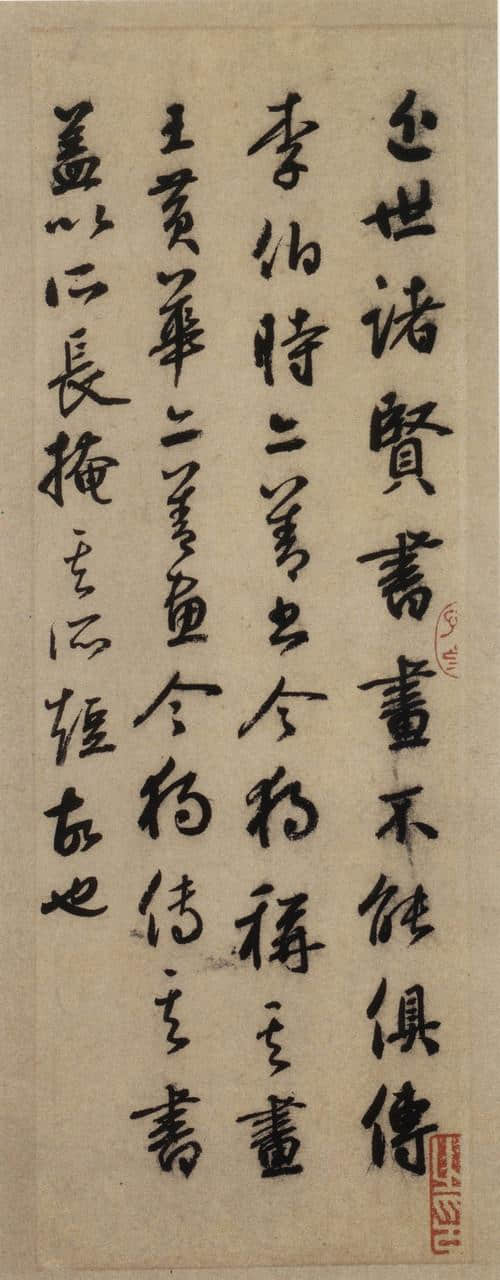 近世諸賢書畫不能俱傳
李伯時亦善書今獨稱其畫
王黄華亦善畫今獨傳其書
蓋以所長掩其所短故也